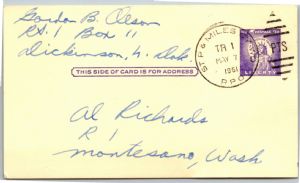 Gordon B. Olson
Rt. 1 Box 11
Dickinson, N. Dak.
ST. P. & MILES
TR 1
MAY 7
1961
R.P.O.
PTS
LIBERTY
THIS SIDE OF CARD IS FOR ADDRESS
Al Richards
R 1
Montesano, Wash